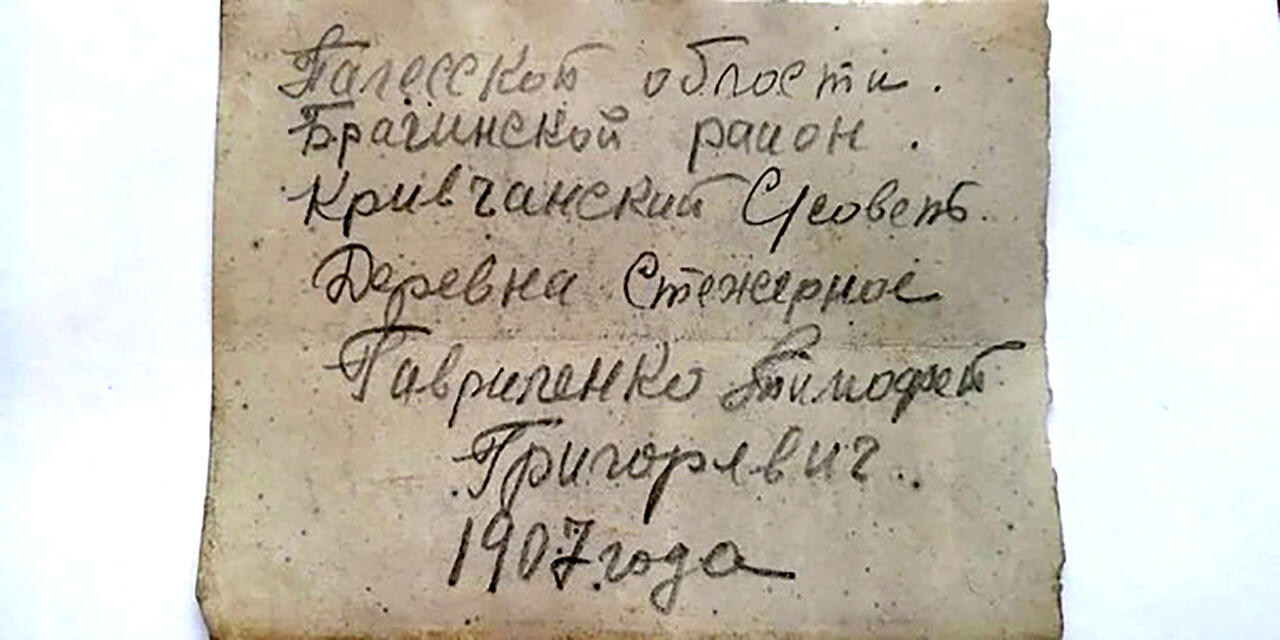 Палесской облости.
Брагинской раион.
Кривчанский С/советь.
Деревна Стежерное
Гавриленко Тимофей
Григорлвич.
1907 года